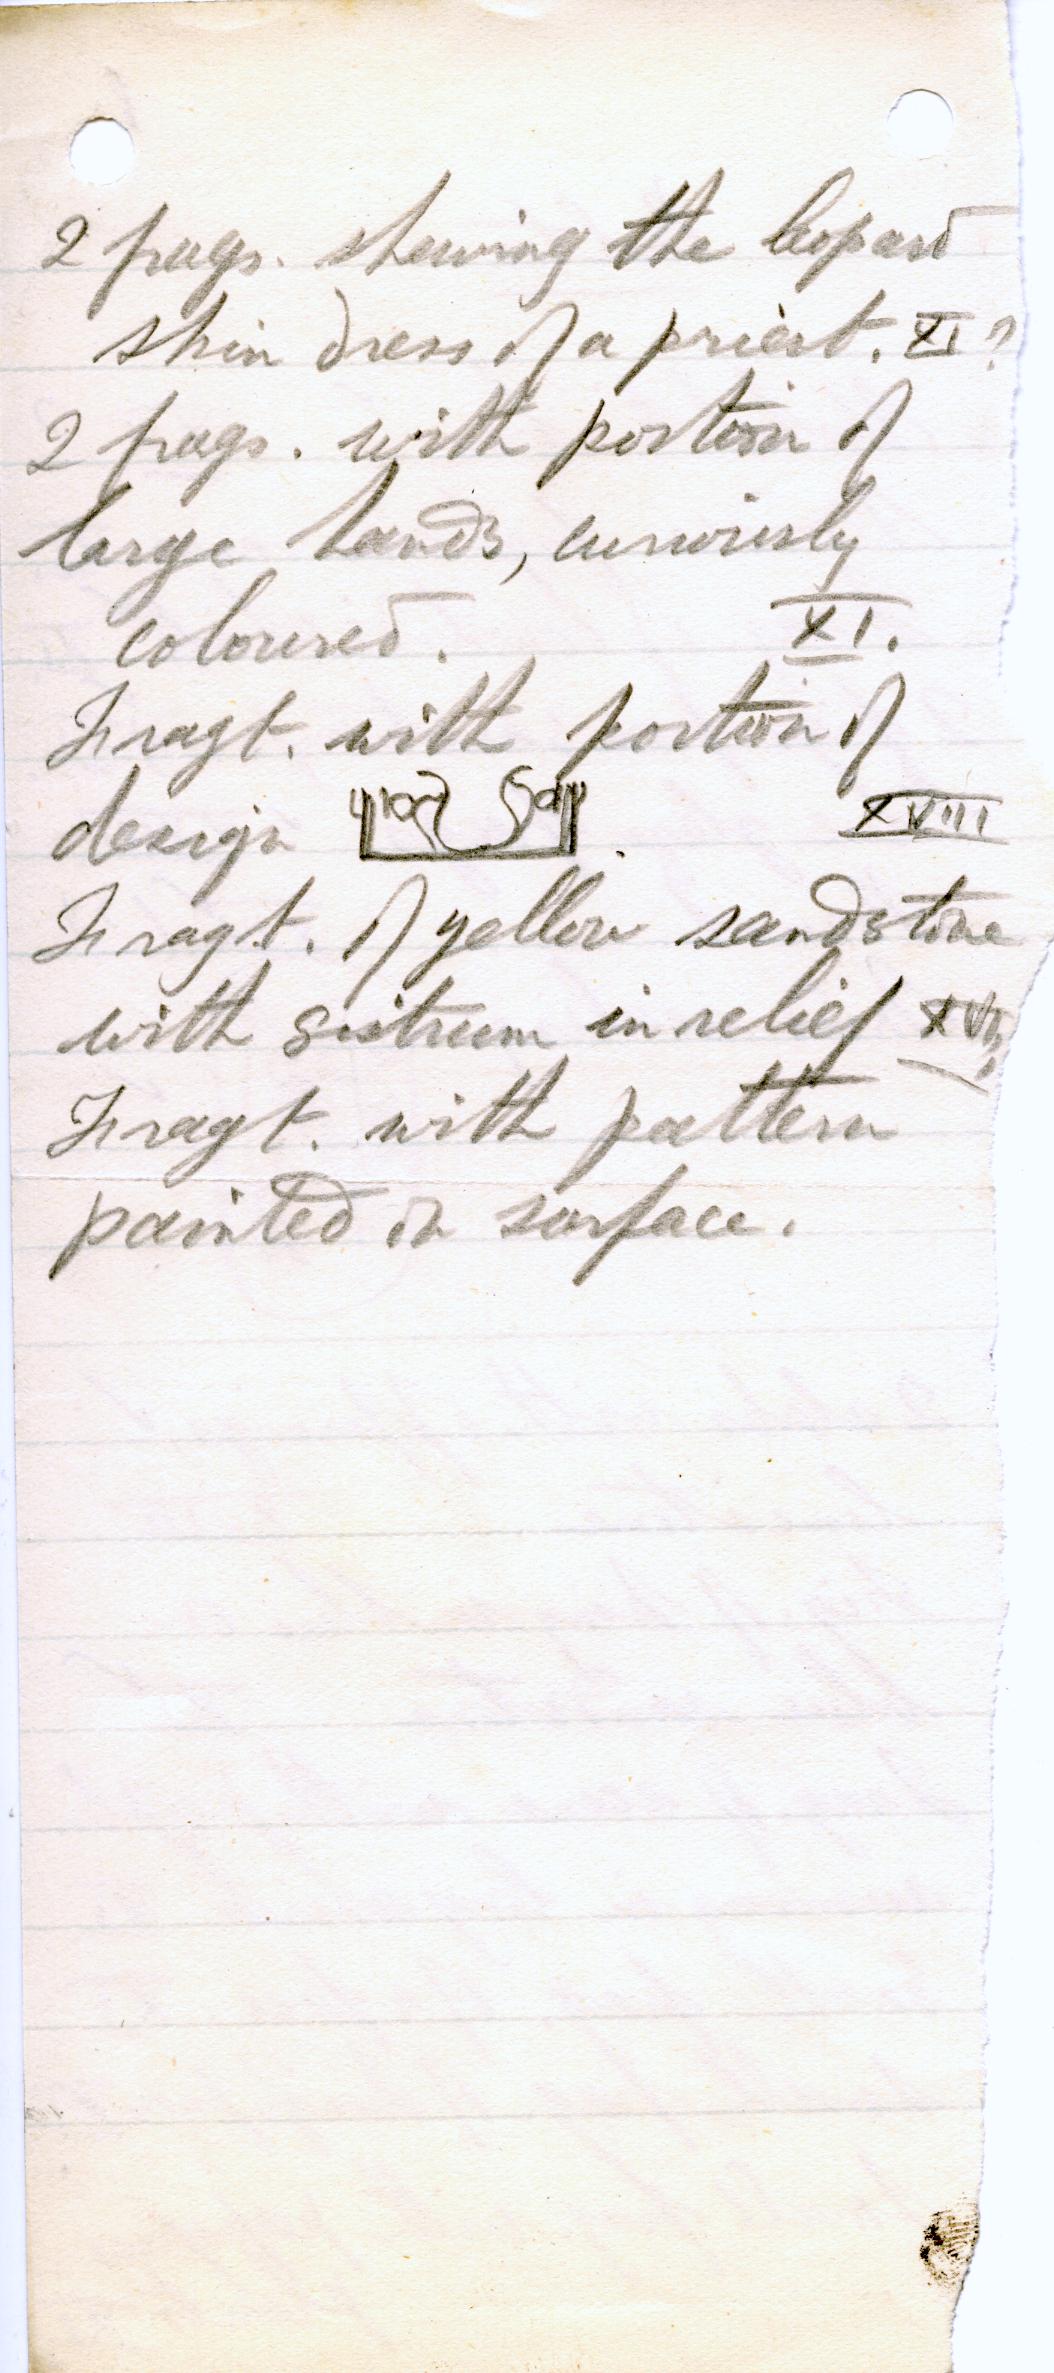 2 frags. shewing the leopard
skin dress of a priest. XI?
2 frags. with portion of
large hands, curiously
coloured. XI.
Fragt. with portion of
design . XVIII
Fragt. of yellow sandstone
with sistrum in relief
Fragt. with pattern
painted on surface.